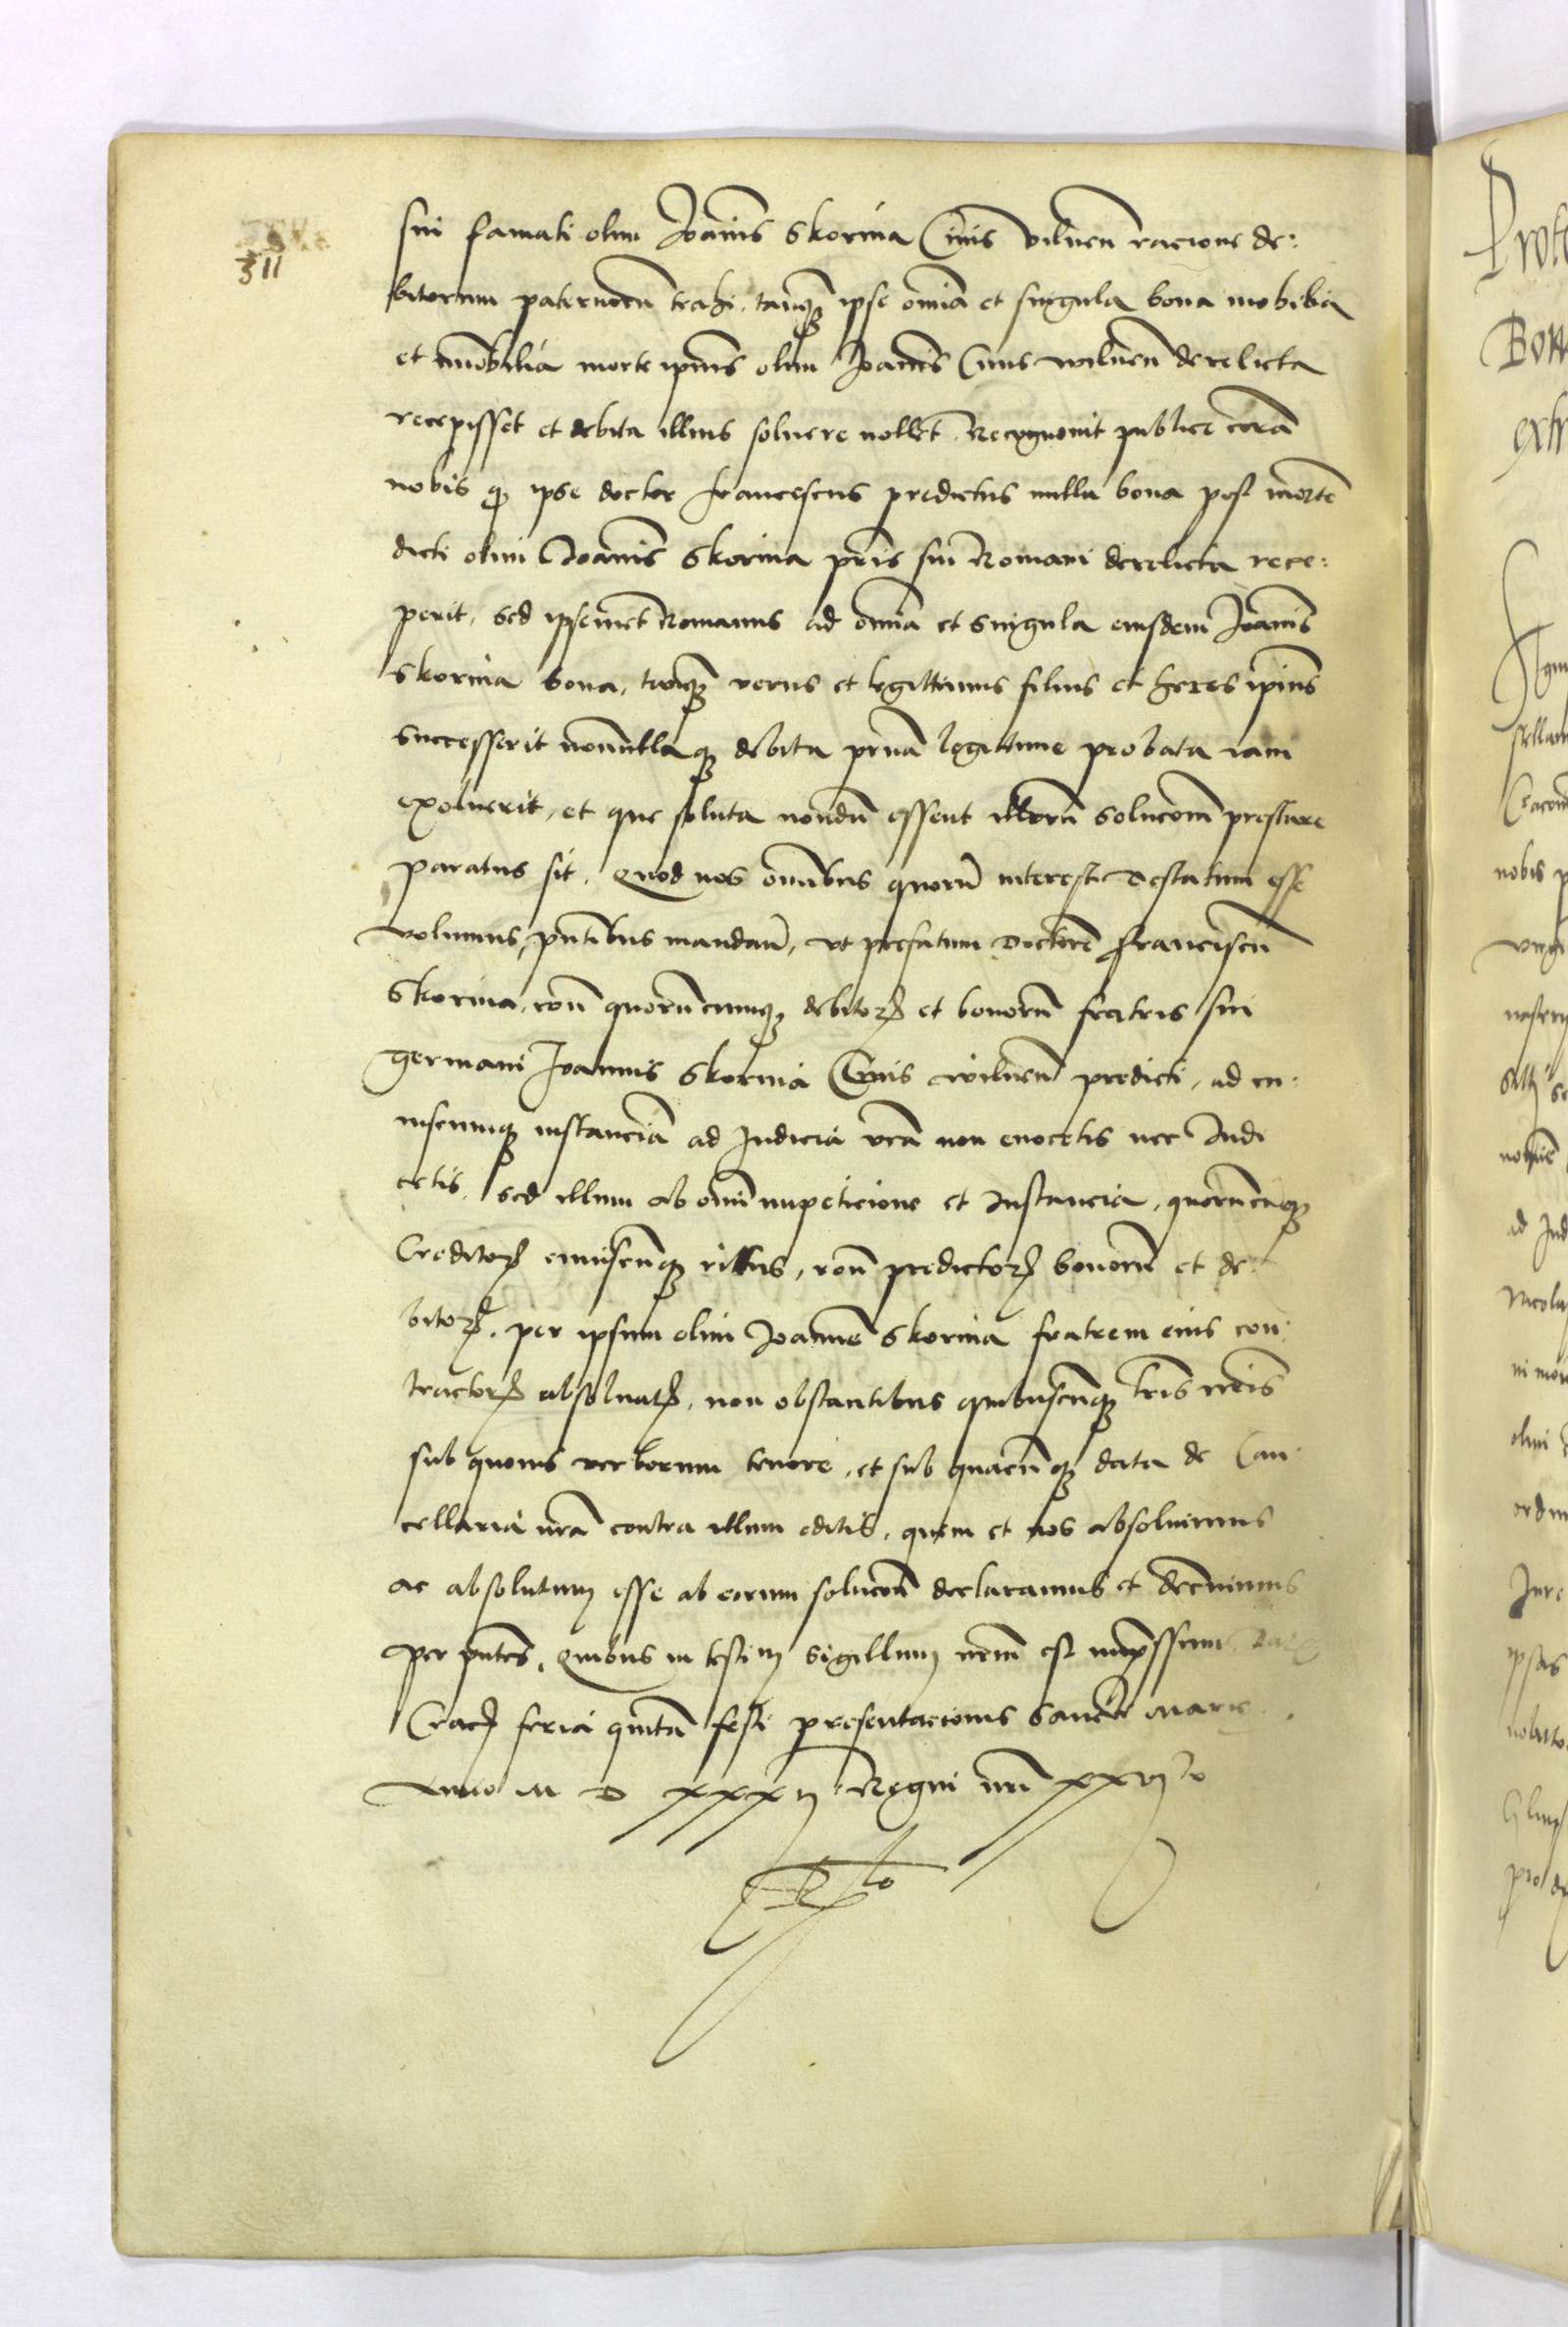 311
sui famati olim Joanis Skorina Civis vilnen racione de:
bitorum paternorum trahi, tanq̃ ipse omia et singula bona mobilia
et imobilia morte ipius olim Joanis Civis wilnen derelicta
recepisset et debita illius soluere nollet. Recognouit publice corã
nobis q̃ ipse doctor franciscus predictus nulla bona post mortẽ
dicti olim Joanis Skorina pris sui Romani derelicta rece:
perit, sed ipsemet Romanus ad omia et singula eiusdem Joanis
Skorina bona, tanq̃ verus et legittimus filius et heres ipius
successerit nonnullaq̃ debita prna legittime probata iam
exoluerit, et que soluta nondũ essent illorũ solucom prestare
paratus sit. Quod nos omibus quorũ interest testatum esse
volumus, pntibus mandam̃, vt prefatum Doctorẽ franciscũ
Skorina, rone quorũcunq̃ debitoꝝ et bonorũ fratris sui
germani Joannis Skorina Civis wilnen predicti, ad cu:
iuscunq̃ instanciã ad Judicia vrã non euocetis nec Judi
cetis, sed illum ab omi impeticione et Instancia, quorũcũq̃
Creditoꝝ cuiuscũq̃ ritus, rone predictoꝝ bonorũ et de:
bitoꝝ, per ipsum olim Joannẽ Skorina fratrem eius con:
tractoꝝ absoluatꝭ, non obstantibus quibuscũq̃ lris nris
sub quouis verborum tenore, et sub quacũq̃ data de Can:
cellaria nrã contra illum editis, quem et nos absoluimus
ac absolutum esse ab eorum solucone declaramus et decernimus
per pntes, Quibus in testim sigillum nrm est impssum
Crac feria quinta festi presentacionis Sancte Marie
Anno M D xxxij Regni nri xxvj to